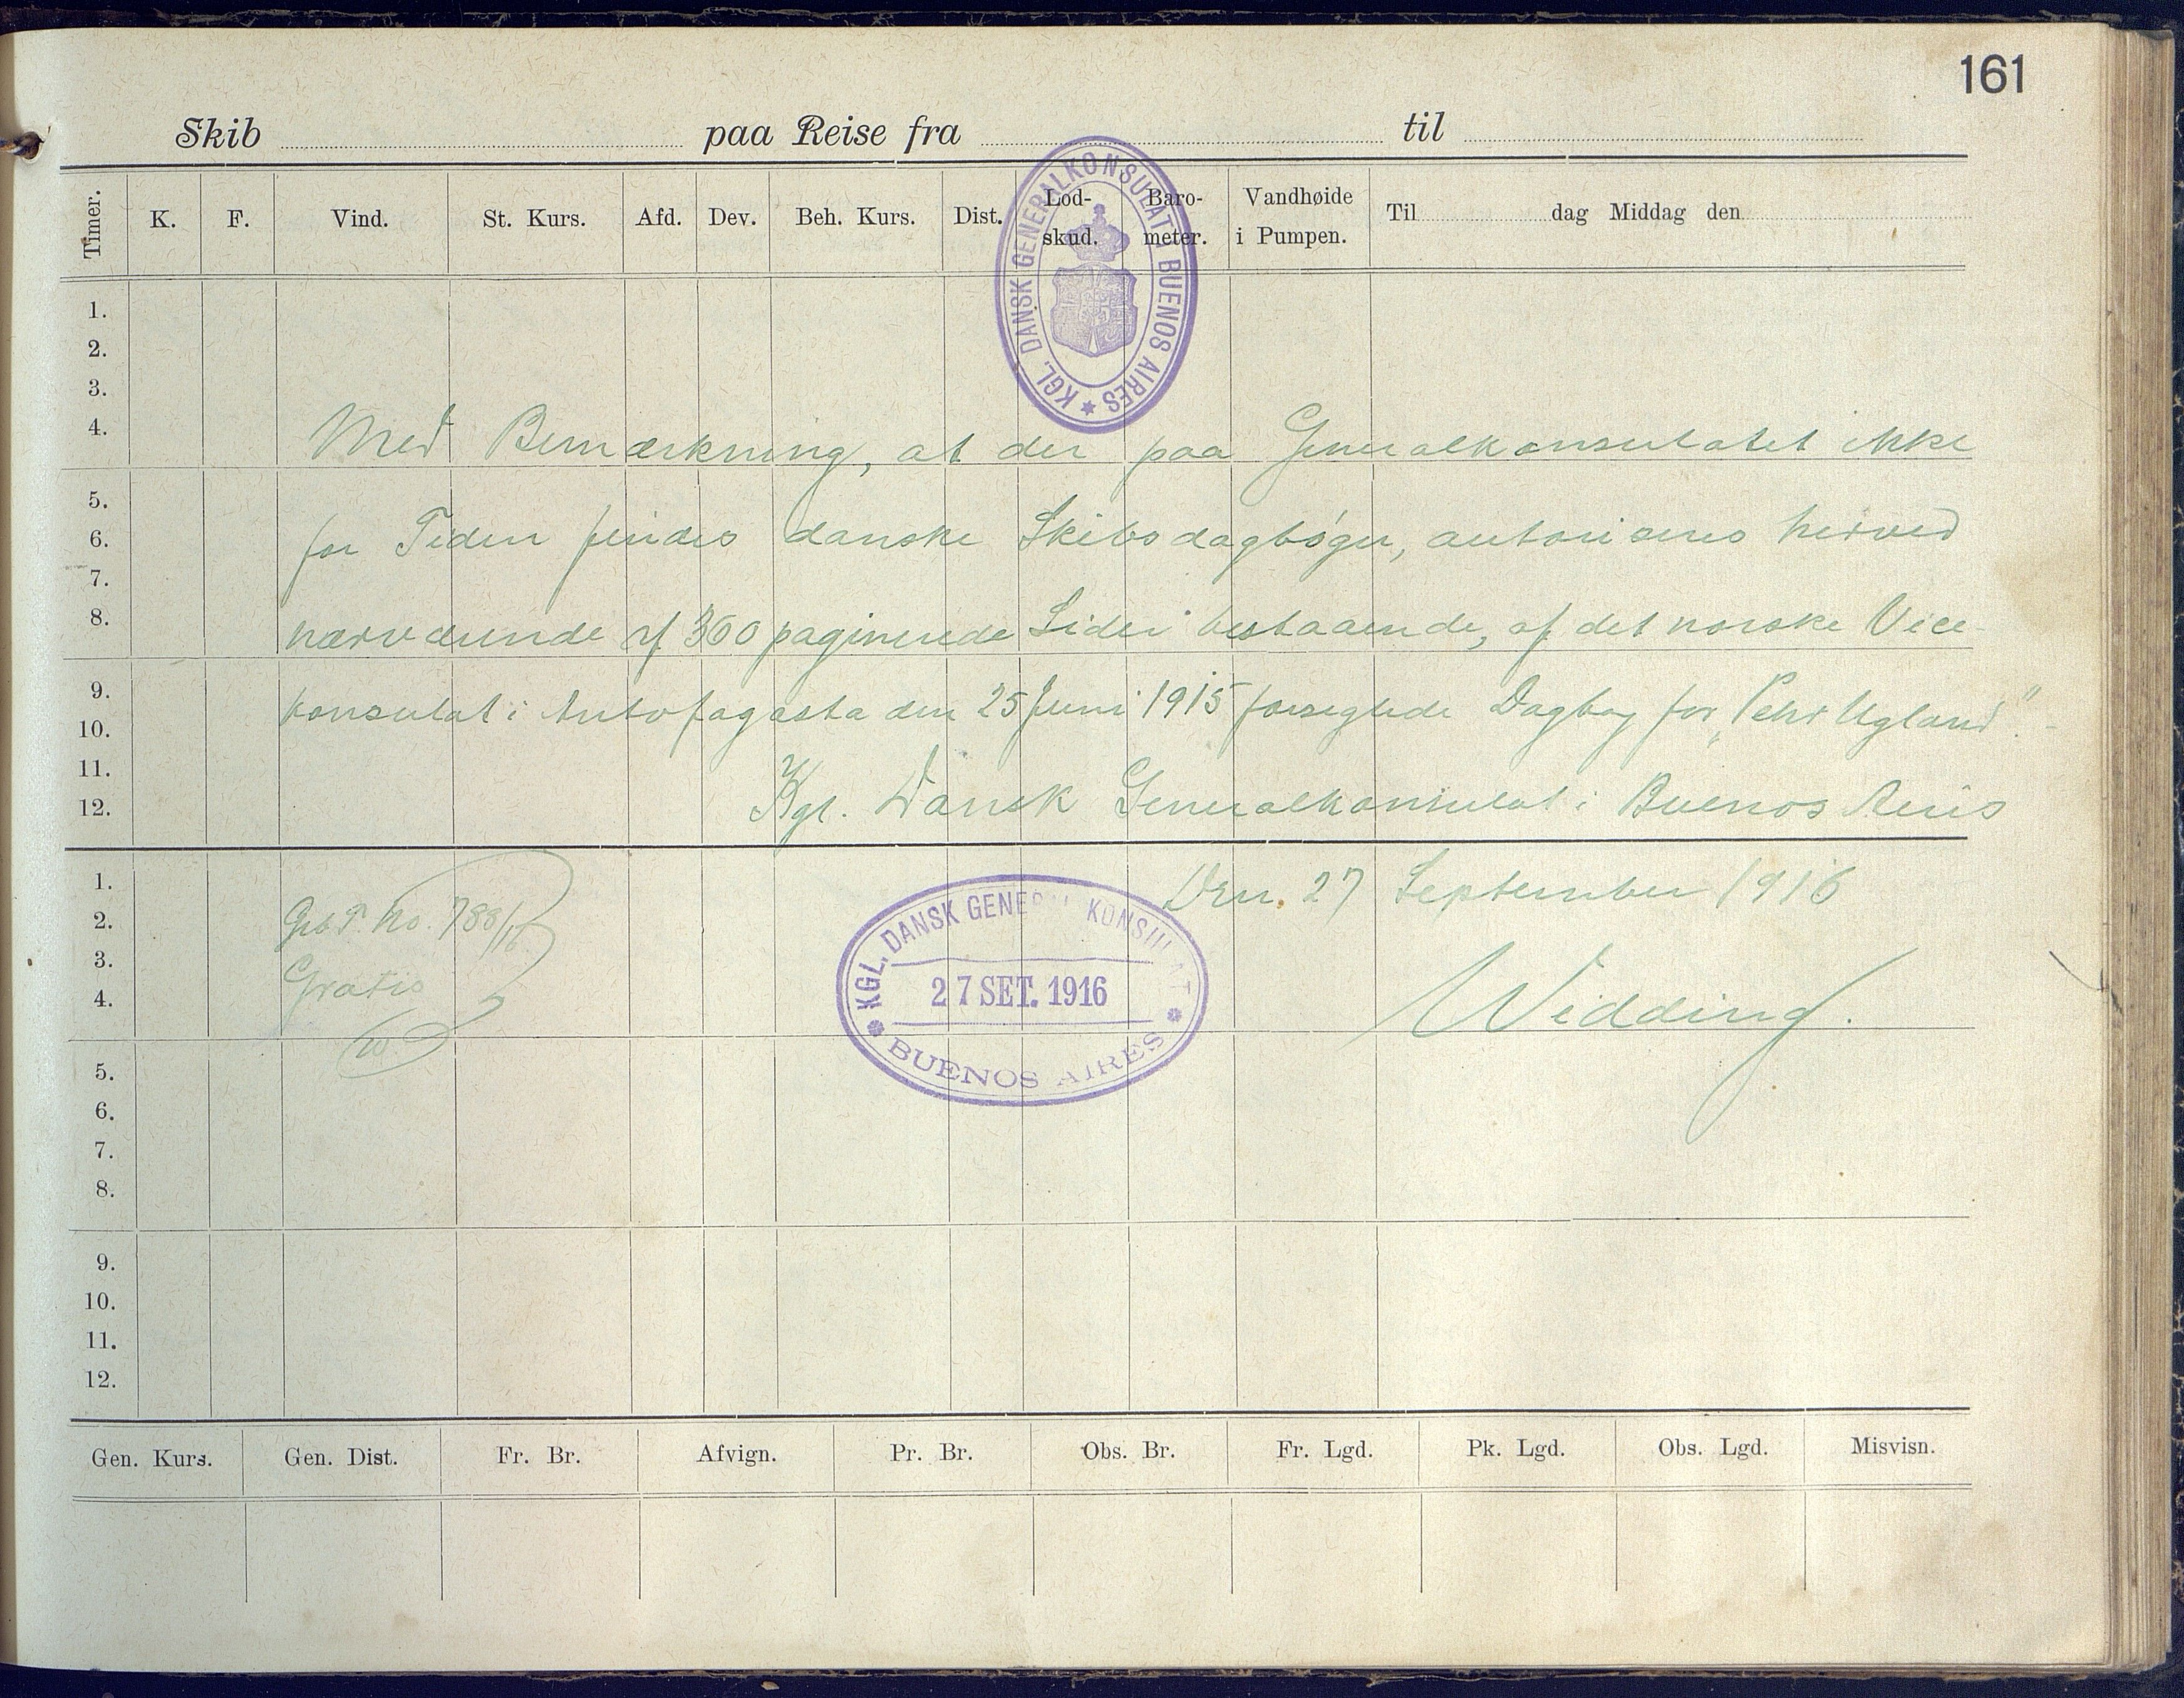 161
Skib paa Reise fra til
Timer. K. F. Vind. St. Kurs. Afd. Dev. Beh. Kurs. Dist. Lod-skud. Baro-meter. Vandhøide i Pumpen. Til dag Middag den
KGL. DANSK GENERALKONSULAT I BUENOS AIRES
1.
2.
3.
4.
Med Bemærkning, at der paa Generalkonsulatet ikke
5.
6.
for Tiden findes danske Skibsdagbøger, autoriseres herved
7.
8.
nærværende af 360 paginerede Sider bestaaende, af det norske Vice-
9.
konsulat i Antofagasta den 25 Juni 1915 forseglede Dagbog for "Pehr Ugland".-
10.
11.
12.
Kgl. Dansk Generalkonsulat i Buenos Aires
1.
Den. 27 September 1916
2.
No. 788/16
3.
Gratis
4.
W
Widding.
KGL. DANSK GENERAL KONSULAT
27 SET. 1916
BUENOS AIRES
5.
6.
7.
8.
9.
10.
11.
12.
Gen. Kurs. Gen. Dist. Fr. Br. Afvign. Pr. Br. Obs. Br. Fr. Lgd. Pk. Lgd. Obs. Lgd. Misvisn.